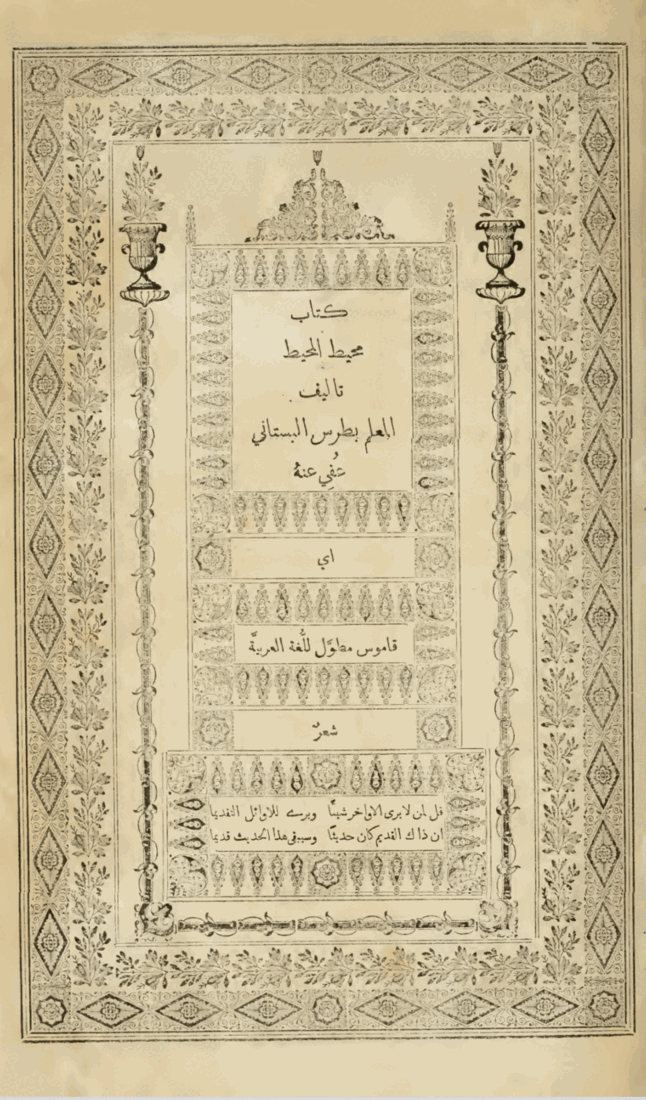 كتاب
محيط المحيط
تاليف
المعلم بطرس البستاني
عُفي عنهُ
اي
قاموس مطوَّل للُّغة العربيَّة
شعرٌ
قل لمن لا يرى الاواخر شيئًا ويرى للاوائل التقديما
ان ذاك القديم كان حديثًا وسيبقى هذا الحديث قديما